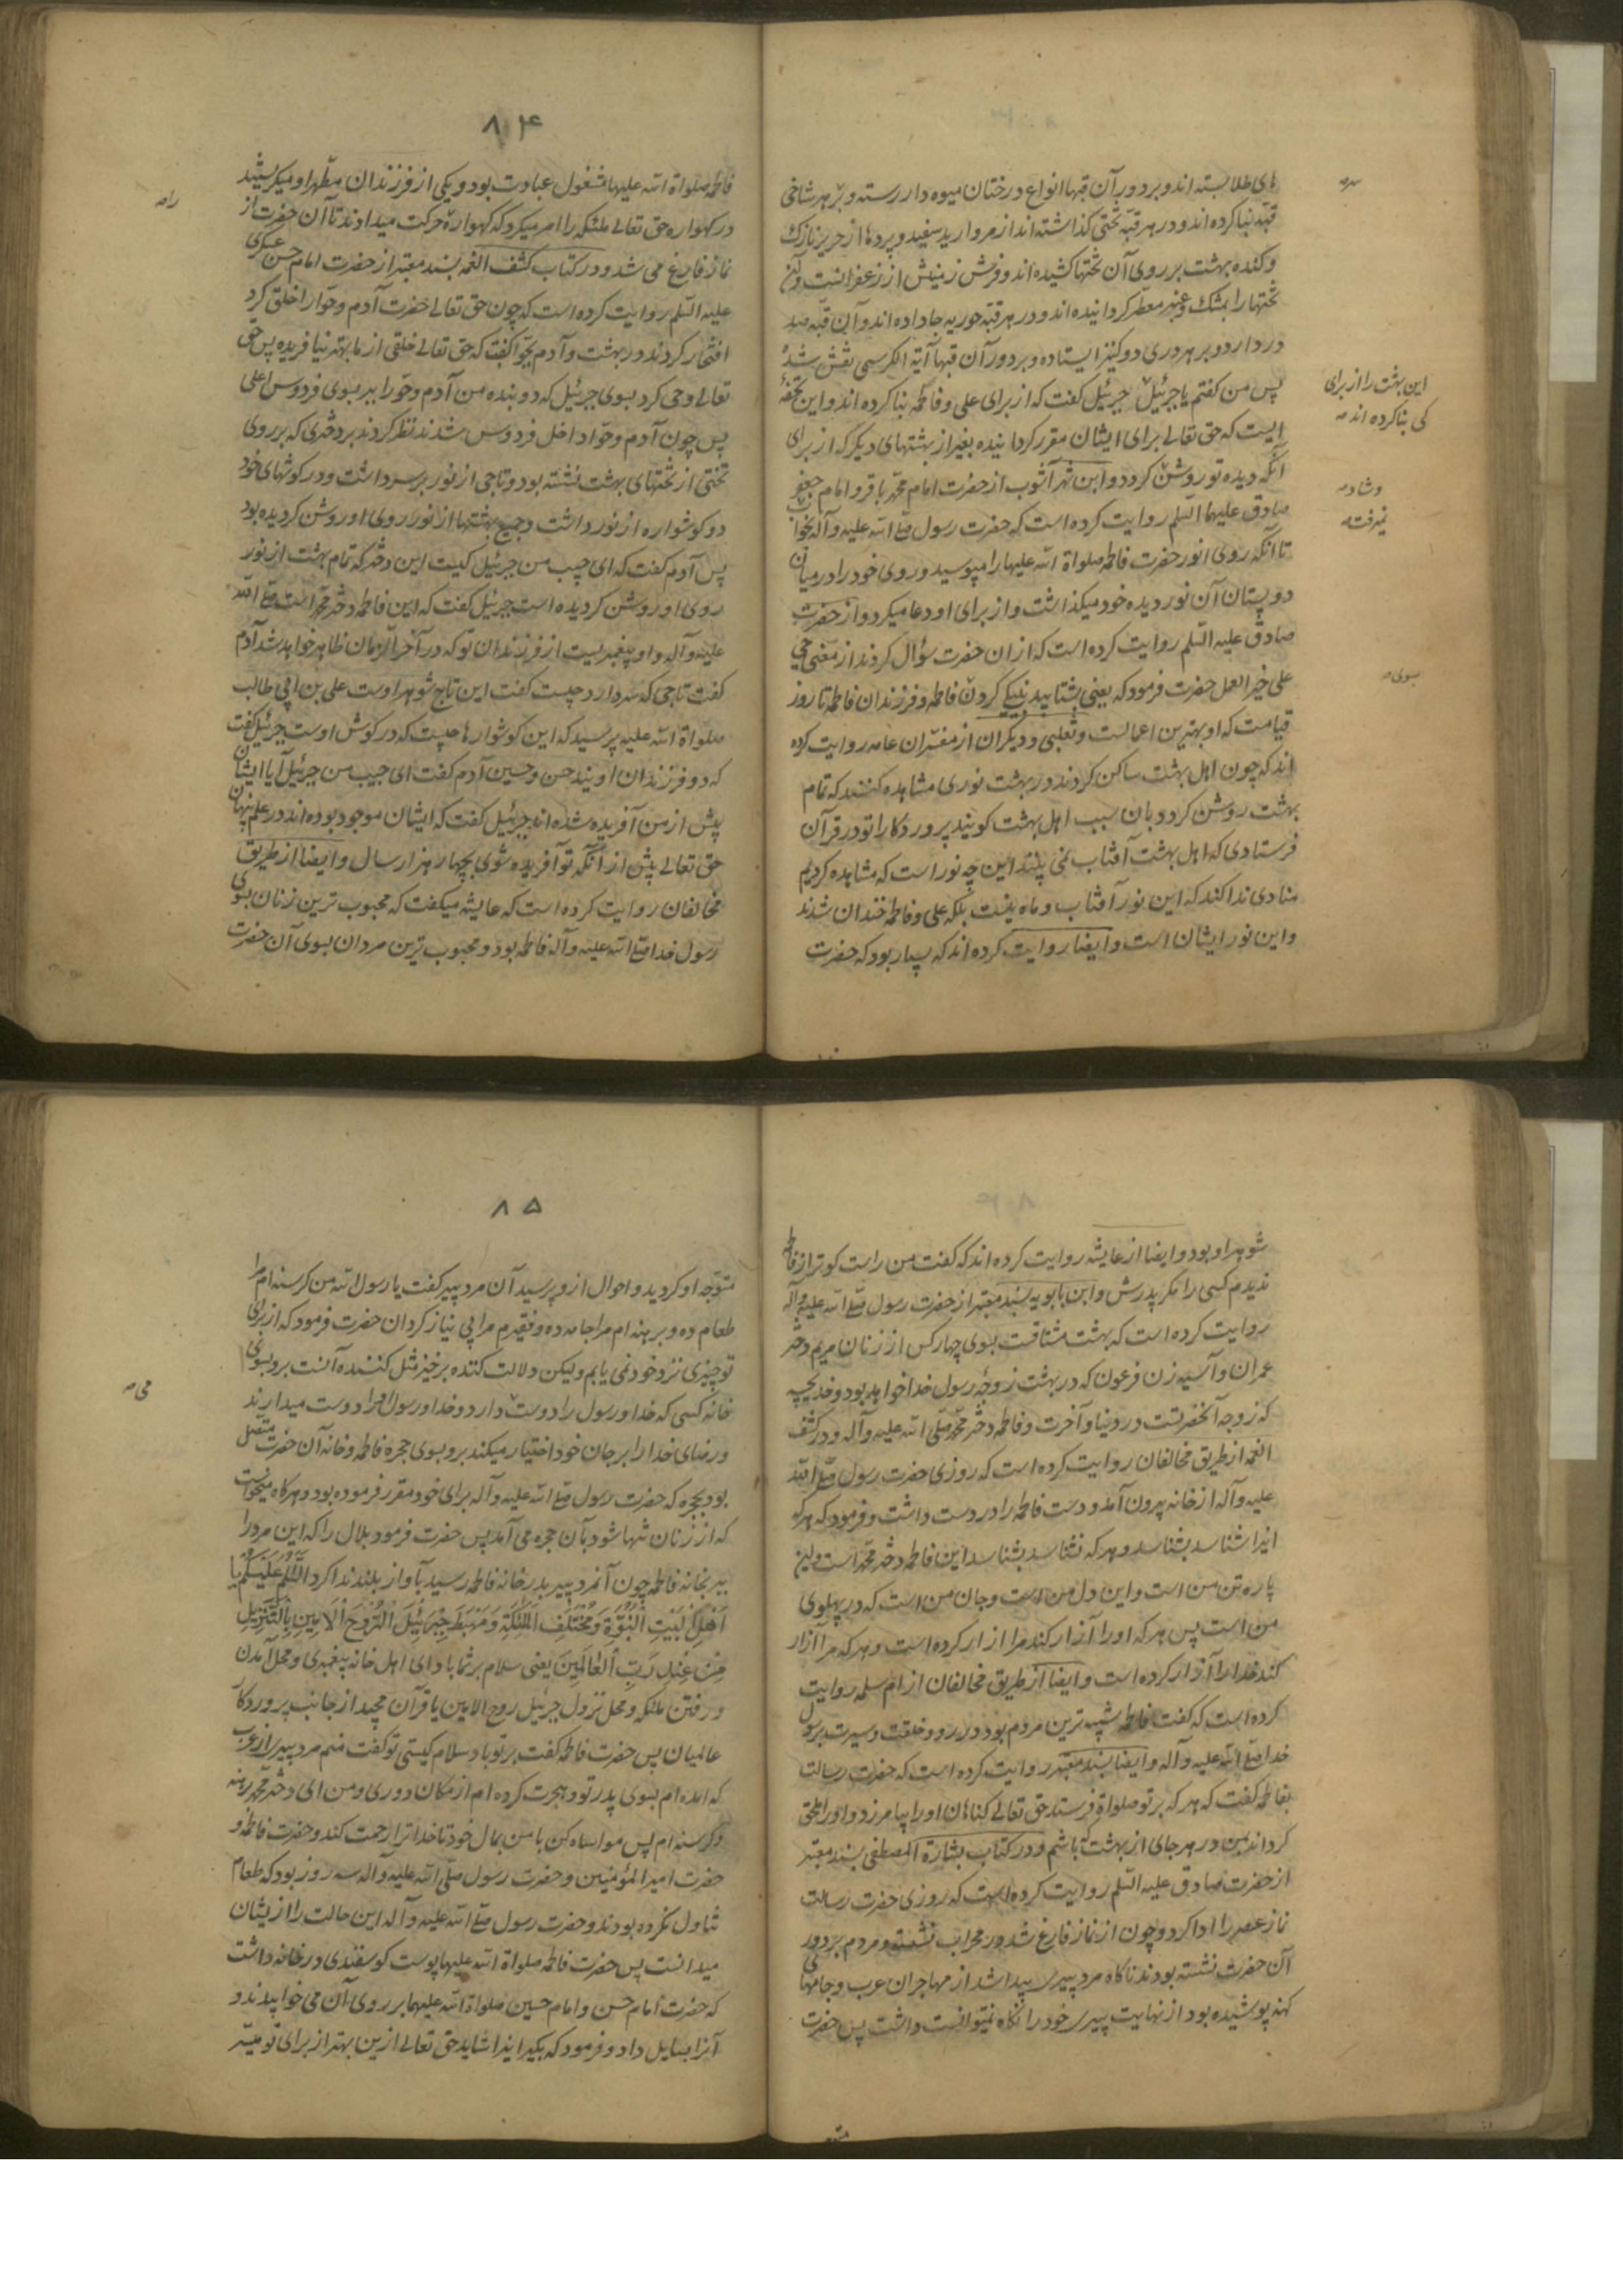 های طلا بسته اند و بر دور آن قبها انواع درختان میوه دار رسته و بر هر شاخی
قبه بنا کرده اند و در هر قبه تختی کذاشته اند از مروارید سفید و پردها از حریر نازک
و کنده بهشت بر روی آن تختها کشیده اند و فرش زمینش از زعفرانست و آن
تختها را بمشک و عنبر معطر کردانیده اند و در هر قبه حوریه جا داده اند و آن قبه صد
در دارد و بر هر دری دو کنیز ایستاده و بر دور آن قبها آیة الکرسی نقش شده
پس من کفتم یا جبرئیل جبرئیل کفت که از برای علی و فاطمه بنا کرده اند و این تحفهٔ
ایست که حق تعالی برای ایشان مقرر کردانیده بغیر از بهشتهای دیکر که از برای
آنکه دیده تو روشن کردد و ابن شهر آشوب از حضرت امام محمد باقر و امام جعفر
صادق علیهما السلم روایت کرده است که حضرت رسول صلی الله علیه و آله نخواب
تا آنکه روی انور حضرت فاطمه صلواة الله علیها را میبوسید و روی خود را در میان
دو پستان آن نور دیده خود میکذاشت و از برای او دعا میکرد و از حضرت
صادق علیه السلم روایت کرده است که از ان حضرت سؤال کردند از معنی حی
علی خیر العمل حضرت فرمود که یعنی بشتابید بنیکی کردن فاطمه و فرزندان فاطمه تا روز
قیامت که او بهترین اعمالست و ثعلبی و دیکران از مفسران عامه روایت کرده
اند که چون اهل بهشت ساکن کردند در بهشت نوری مشاهده کنند که تمام
بهشت روشن کردد بان سبب اهل بهشت کویند پروردکارا تو در قرآن
فرستادی که اهل بهشت آفتاب نمی بینند این چه نور است که مشاهده کردیم
منادی ندا کند که این نور آفتاب و ماه نیست بلکه علی و فاطمه خندان شدند
و این نور ایشان است و ایضا روایت کرده اند که بسیار بود که حضرت
سه
این بهشت را از برای
کی بنا کرده اند مه
و شاد مه
نمیرفت مه
بسوی مه
۸۴
فاطمه صلواة الله علیها مشغول عبادت بود و یکی از فرزندان مطهر او میکریستند
در کهواره حق تعالی ملئکه را امر میکرد که کهواره حرکت میدادند تا آن حضرت از
نماز فارغ می شد و در کتاب کشف الغمه بسند معتبر از حضرت امام حسن عسکری
علیه السلم روایت کرده است که چون حق تعالی حضرت آدم و حوا را خلق کرد
افتخار کردند در بهشت و آدم بحوا کفت که حق تعالی خلقی از ما بهتر نیافریده پس حق
تعالی وحی کرد بسوی جبرئیل که دو بنده من آدم و حوا را ببر بسوی فردوس اعلی
پس چون آدم و حوا داخل فردوس شدند نظر کردند بر دختری که بر روی
تختی از تختهای بهشت نشسته بود و تاجی از نور بر سر داشت و در کوشهای خود
دو کوشواره از نور داشت و جمیع بهشتها از نور روی او روشن کردیده بود
پس آدم کفت که ای حبیب من جبرئیل کیست این دختر که تمام بهشت از نور
روی او روشن کردیده است جبرئیل کفت که این فاطمه دختر محمد است صلی الله
علیه و آله و او پیغمبریست از فرزندان تو که در آخر الزمان ظاهر خواهد شد آدم
کفت تاجی که سر دارد چیست کفت این تاج شوهر اوست علی بن ابی طالب
صلواة الله علیه پرسید که این کوشوارها چیست که در کوش اوست جبرئیل کفت
که دو فرزندان اویند حسن و حسین آدم کفت ای حبیب من جبرئیل آیا ایشان
پیش از من آفریده شده اند جبرئیل کفت که ایشان موجود بوده اند در علم پنهان
حق تعالی پیش از آنکه تو آفریده شوی بچهار هزار سال و ایضا از طریق
مخالفان روایت کرده است که عایشه میکفت که محبوب ترین زنان بسوی
رسول خدا صلی الله علیه و آله فاطمه بود و محبوب ترین مردان بسوی آن حضرت
راه
شوهر او بود و ایضا از عایشه روایت کرده اند که کفت من راست کوتر از فاطمه
ندیدم کسی را مکر پدرش و ابن بابویه بسند معتبر از حضرت رسول صلی الله علیه و آله
روایت کرده است که بهشت مشتاقست بسوی چهار کس از زنان مریم دختر
عمران و آسیه زن فرعون که در بهشت زوجه رسول خدا خواهد بود و خدیجه
که زوجه آنحضرتست در دنیا و آخرت و فاطمه دختر محمد صلی الله علیه و آله و در کشف
الغمه از طریق مخالفان روایت کرده است که روزی حضرت رسول صلی الله
علیه و آله از خانه بیرون آمد و دست فاطمه را در دست داشت و فرمود که هر که
اینرا شناسد بشناسد و هر که نشناسد بشناسد این فاطمه دختر محمد است و این
پاره تن من است و این دل من است و جان من است که در پهلوی
من است پس هر که او را آزار کند مرا ازار کرده است و هر که مرا آزار
کند خدا را آزار کرده است و ایضا از طریق مخالفان از ام سلمه روایت
کرده است که کفت فاطمه شبیه ترین مردم بود در رو و خلقت و سیرت برسول
خدا صلی الله علیه و آله و ایضا بسند معتبر روایت کرده است که حضرت رسالت
بفاطمه کفت که هر که بر تو صلواة فرستد حق تعالی کناهان او را بیامرزد و او را ملحق
کرداند بمن در هر جای از بهشت که باشم و در کتاب بشارة المصطفی بسند معتبر
از حضرت صادق علیه السلم روایت کرده است که روزی حضرت رسالت
نماز عصر را ادا کرد و چون از نماز فارغ شد در محراب نشست و مردم بر دور
آن حضرت نشسته بودند ناکاه مرد پیری پیدا شد از مهاجران عرب و جامهای
کهنه پوشیده بود از نهایت پیری خود را نکاه نمیتوانست داشت پس حضرت
۸۵
متوجه او کردید و احوال از و پرسید آن مرد پیر کفت یا رسول الله من کرسنه ام مرا
طعام ده و برهنه ام مرا جامه ده و فقیرم مرا بی نیاز کردان حضرت فرمود که از برای
تو چیزی نزد خود نمی یابم ولیکن دلالت کننده بر خیر مثل کننده آنست برو بسوی
خانه کسی که خدا و رسول را دوست دارد و خدا و رسول او را دوست میدارند
و رضای خدا را بر جان خود اختیار میکند برو بسوی حجره فاطمه و خانه آن حضرت متصل
بود بحجره که حضرت رسول صلی الله علیه و آله برای خود مقرر فرموده بود و هر کاه میخواست
که از زنان تنها شود بآن حجره می آمد پس حضرت فرمود بلال را که این مرد را
ببر بخانه فاطمه چون آنمرد پیر بدر خانه فاطمه رسید بآواز بلند ندا کرد السَّلٰمُ عَلَیْکُم یا
اَهْلَ بَیْتِ النُّبُوَّةِ وَمُخْتَلَفِ المَلٰئِکَةِ وَمَهْبَطَ جِبْرَئیلَ الرُّوحَ الْاَمینِ بِالتَّنْزیلِ
مِنْ عِنْدِ رَبِّ الْعٰالَمینَ یعنی سلام بر شما باد ای اهل خانه پیغمبری و محل آمدن
و رفتن ملئکه و محل نزول جبرئیل روح الامین با قرآن مجید از جانب پروردکار
عالمیان پس حضرت فاطمه کفت بر تو باد سلام کیستی تو کفت منم مرد پیر از عرب
که آمده ام بسوی پدر تو و هجرت کرده ام از مکان دوری و من ای دختر محمد برهنه
و کرسنه ام پس مواساه کن با من بمال خود تا خدا ترا رحمت کند و حضرت فاطمه و
حضرت امیر المؤمنین و حضرت رسول صلی الله علیه و آله سه روز بود که طعام
تناول نکرده بودند و حضرت رسول صلی الله علیه و آله این حالت را از ایشان
میدانست پس حضرت فاطمه صلواة الله علیها پوست کوسفندی در خانه داشت
که حضرت امام حسن و امام حسین صلواة الله علیهما بر روی آن می خوابیدند و
آنرا بسایل داد و فرمود که بکیر اینرا شاید حق تعالی ازین بهتر از برای تو میسر
می مه